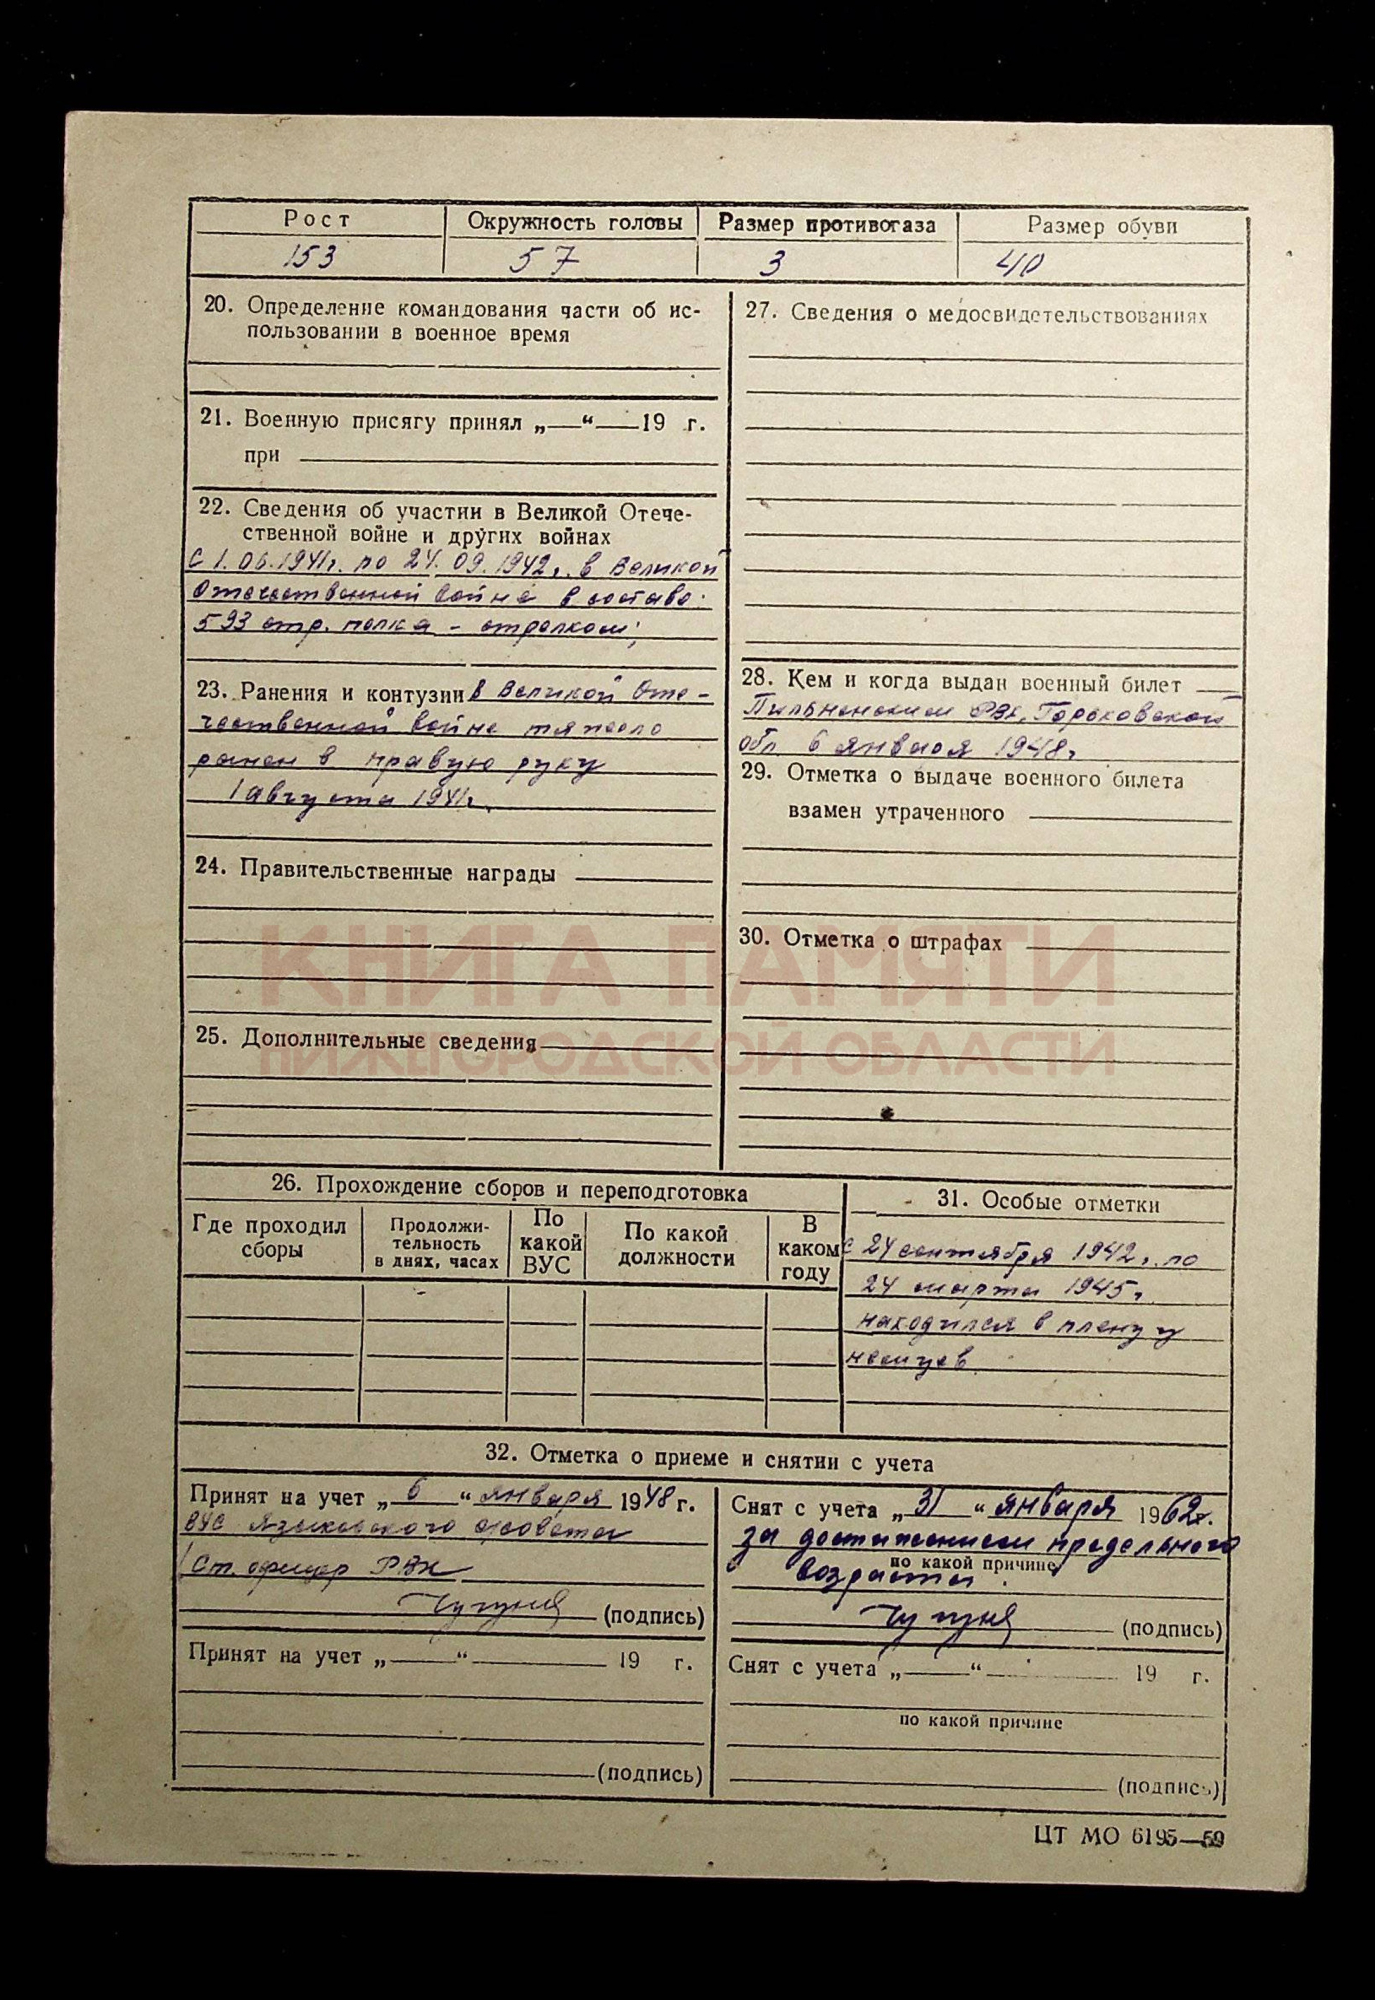 Рост Окружность головы Размер противогаза Размер обуви
153 57 3 40
20. Определение командования части об ис-
пользовании в военное время
21. Военную присягу принял „ “ 19 г.
при
22. Сведения об участии в Великой Отече-
ственной войне и других войнах
С 1.06.1941г. по 24.09.1942г. в Великой
Отечественной войне в составе:
593 стр. полка - стрелком;
23. Ранения и контузии в Великой Оте-
чественной войне тяжело
ранен в правую руку
1 августа 1941г.
24. Правительственные награды
25. Дополнительные сведения
27. Сведения о медосвидетельствованиях
28. Кем и когда выдан военный билет
Пильненским РВК, Горьковской
обл 6 января 1948г
29. Отметка о выдаче военного билета
взамен утраченного
30. Отметка о штрафах
КНИГА ПАМЯТИ
НИЖЕГОРОДСКОЙ ОБЛАСТИ
26. Прохождение сборов и переподготовка
Где проходил сборы
Продолжи-
тельность
в днях, часах
По какой ВУС
По какой должности
В каком году
31. Особые отметки
с 24 сентября 1942г. по
24 марта 1945г.
находился в плену у
немцев
32. Отметка о приеме и снятии с учета
Принят на учет „ 6 “ января 1948 г.
ВУС Языковского с/совета
Ст. офицер РВК
(подпись)
Принят на учет „ “ 19 г.
(подпись)
Снят с учета „ 31 “ января 1962г.
за достижением предельного
по какой причине
возраста.
(подпись)
Снят с учета „ “ 19 г.
по какой причине
(подпись)
ЦТ МО 6195—59